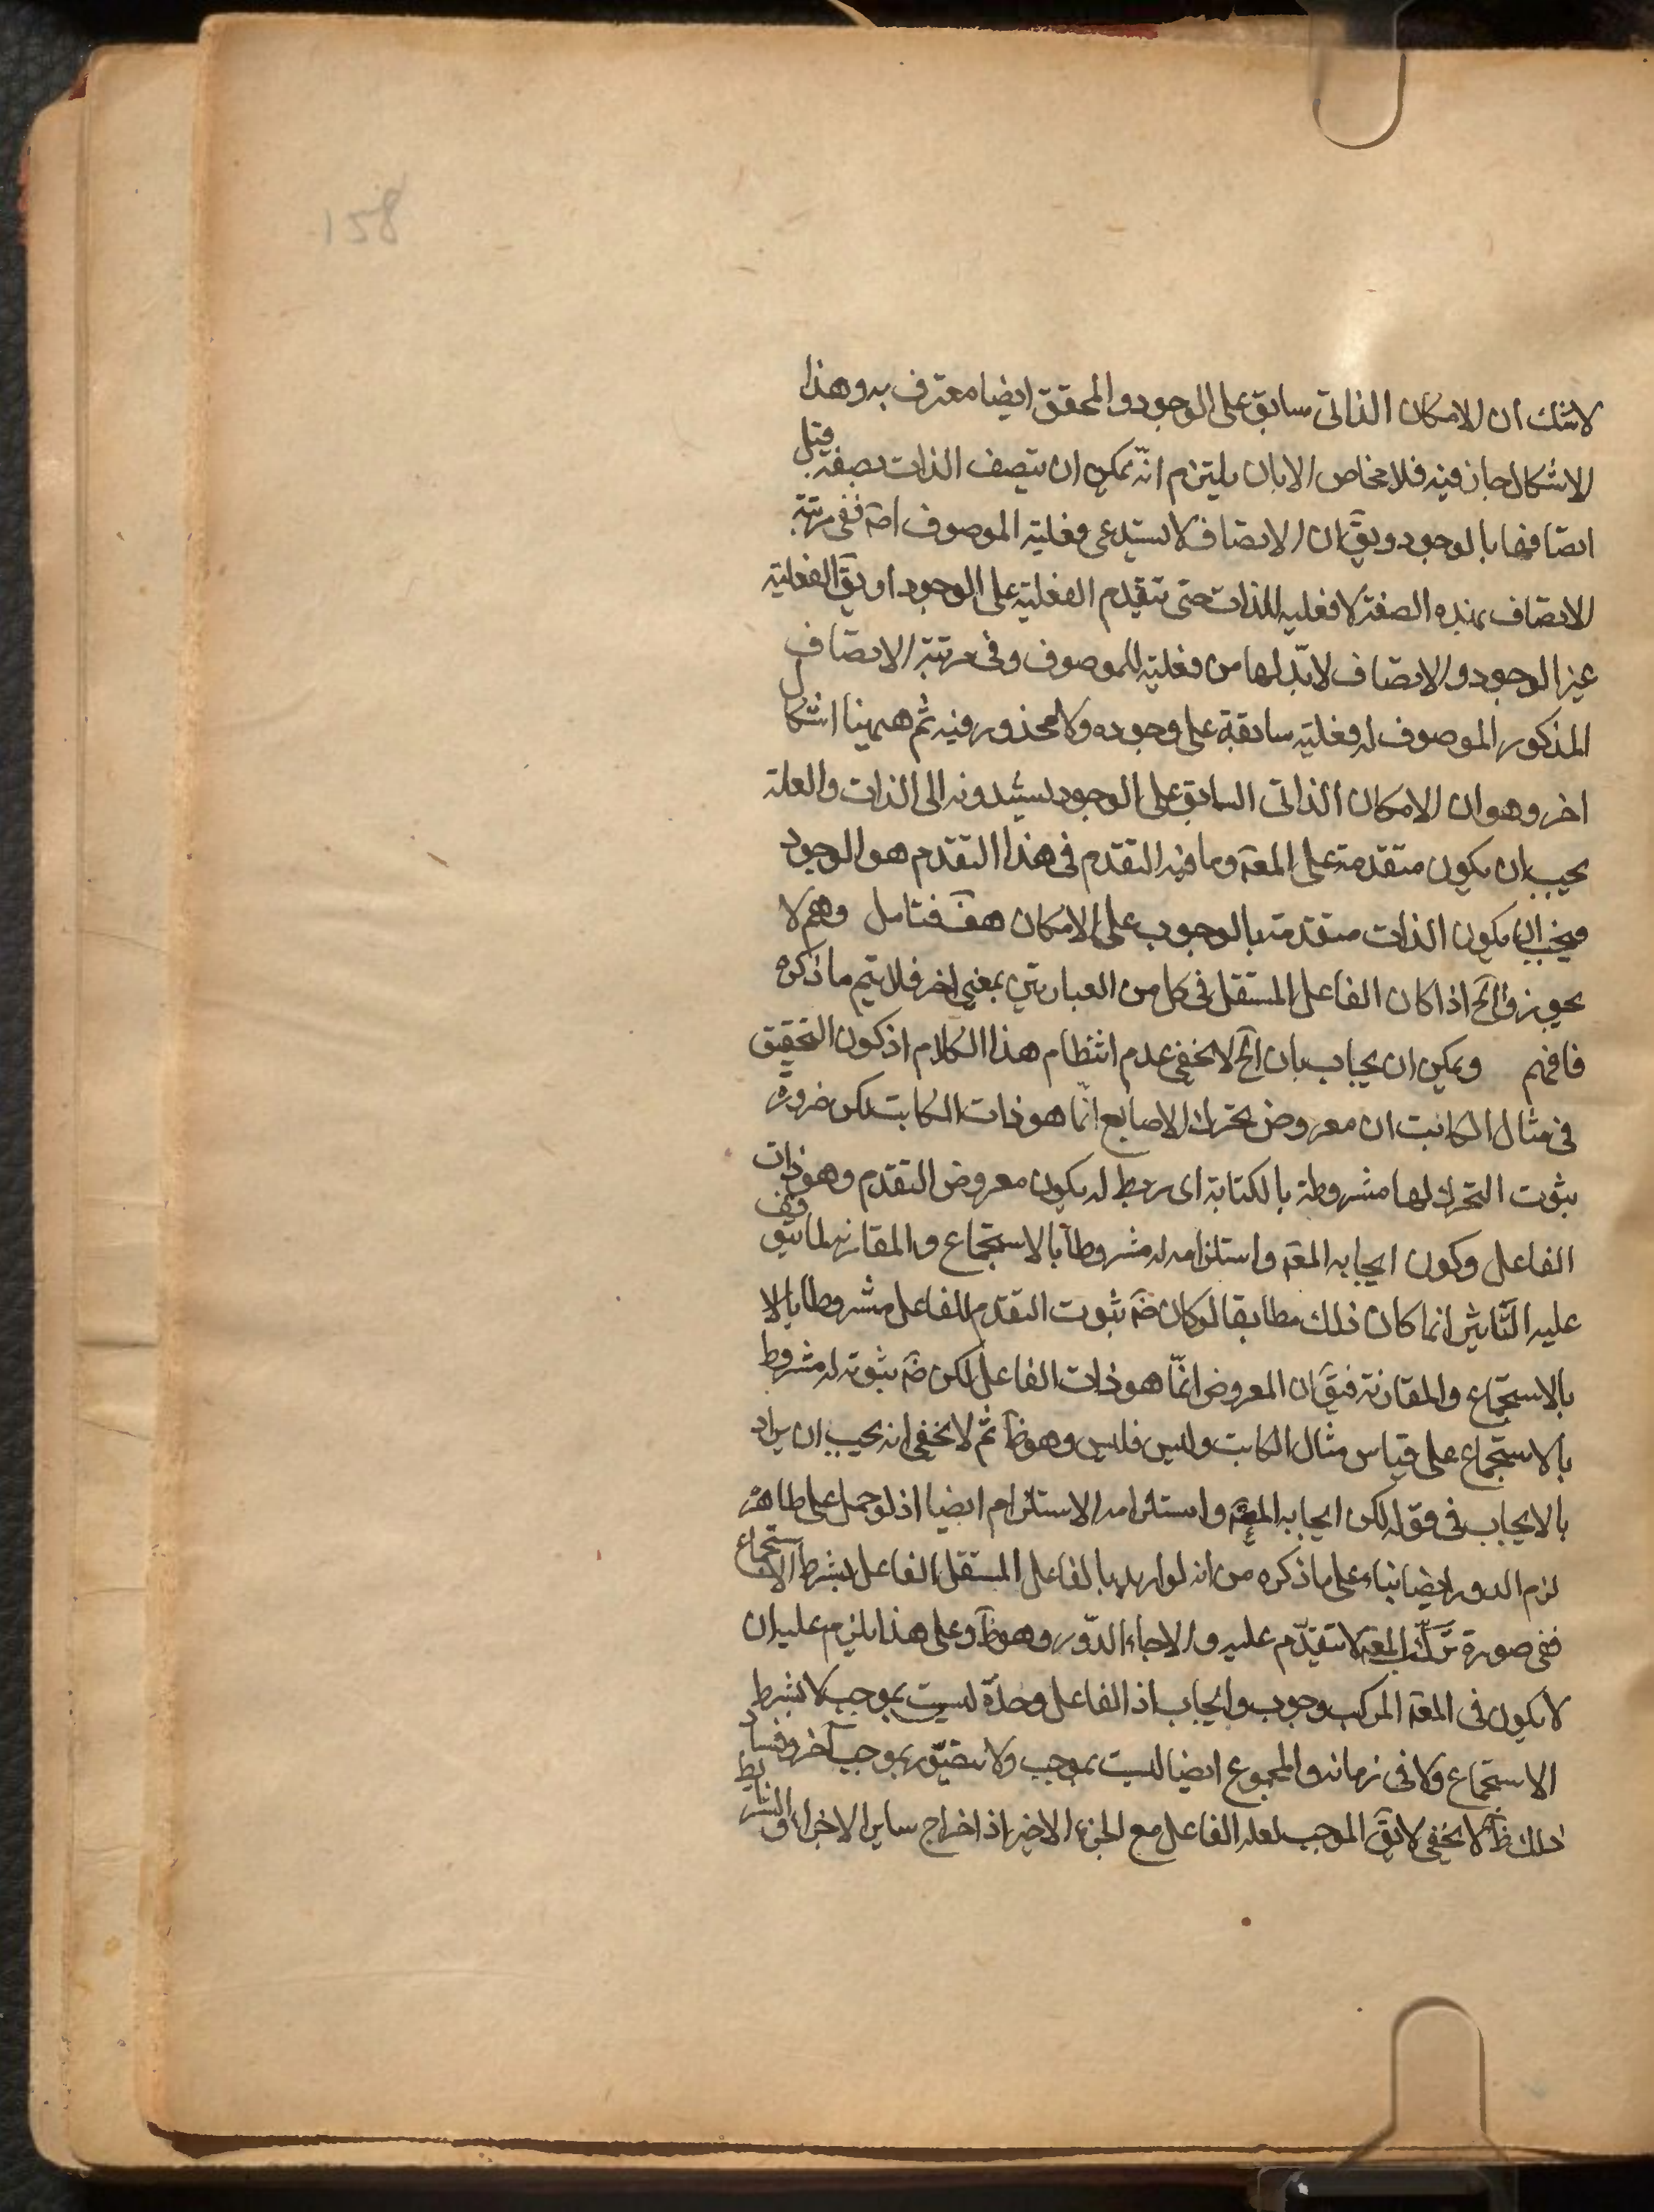 158
لاشك ان الامكان الذاتى سابق على الوجود والمحقق ايضا معترف به وهذا
الاشكال جاز فيه فلا مخاص الا بان يلتزم انّه يمكن ان يتصف الذات بصفة قبل
اتصافها بالوجود ويقۤ ان الاتصاف لا يستدعى فعلية الموصوف اصۤ ففى مرتبة
الاتصاف بهذه الصفة لا فعليه للذات حتى تتقدم الفعلية على الوجود او يقۤ الفعلية
غير الوجود والاتصاف لابّد لها من فعلية للموصوف وفى مرتبة الاتصاف
المذكور الموصوف له فعلية سابقة على وجوده ولا محذور فيه ثم ههنا اشكال
اخر وهو ان الامكان الذاتى السابق على الوجود يسندونه الى الذات والعلة
يجب ان يكون متقدمة على المعۤ وما فيه التقدم فى هذا التقدم هو الوجود
فيجب ان يكون الذات متقدمة بالوجوب على الامكان هفۤ فتامل وهم لا
يجوزوا آلخ اذا كان الفاعل المستقل فى كل من العبارتين بمعنى اخر فلا يتم ما ذكره
فافهم ويمكن ان يجاب بان آلخ لا يخفى عدم انتظام هذا الكلام اذ كون التحقيق
فى مثال الكاتب ان معروض تحرك الاصابع انّما هو ذات الكاتب لكن ضرورة
ثبوت التحرك لها مشروطة بالكتابة اى ربط له بكون معروض التقدم وهو ذات
الفاعل وكون ايجابه المعۤ واستلزامه له مشروطا بالاستجماع والمقارنة لما يتوقف
عليه التاثير انما كان ذلك مطابقا لو كان ضۤ ثبوت التقدم للفاعل مشروطا بالا
بالاستجماع والمقارنة فيقۤ ان المعروض انّما هو ذات الفاعل لكن ضۤ ثبوته له مشروط
بالاستجماع على قياس مثال الكاتب وليس فليس وهو ظۤ ثم لا يخفى انه يجب ان يراد
بالايجاب فى قوله لكن ايجابه المعۤ واستلزامه الاستلزام ايضا اذ لو حمل على ظاهره
لزم الدور ايضا بناء على ما ذكره من انه لو اريد بالفاعل المستقل الفاعل بشرط الاستجماع
ففى صورة تركّب المعۤ لا تتقدّم عليه والا جاء الدّور وهو ظۤ وعلى هذا يلزم عليه ان
لا يكون فى المعۤ المركب وجوب وايجاب اذ الفاعل وحدّه ليست بموجب لا بشرط
الاستجماع ولا فى زمانه والمجموع ايضا ليست بموجب ولا يتصّور بموجب آخر وفساد
ذلك ظۤ كما لا يخفى لا يقۤ الموجب لعله الفاعل مع الجزء الاخير اذ اخراج ساير الاجزاء والشرايط